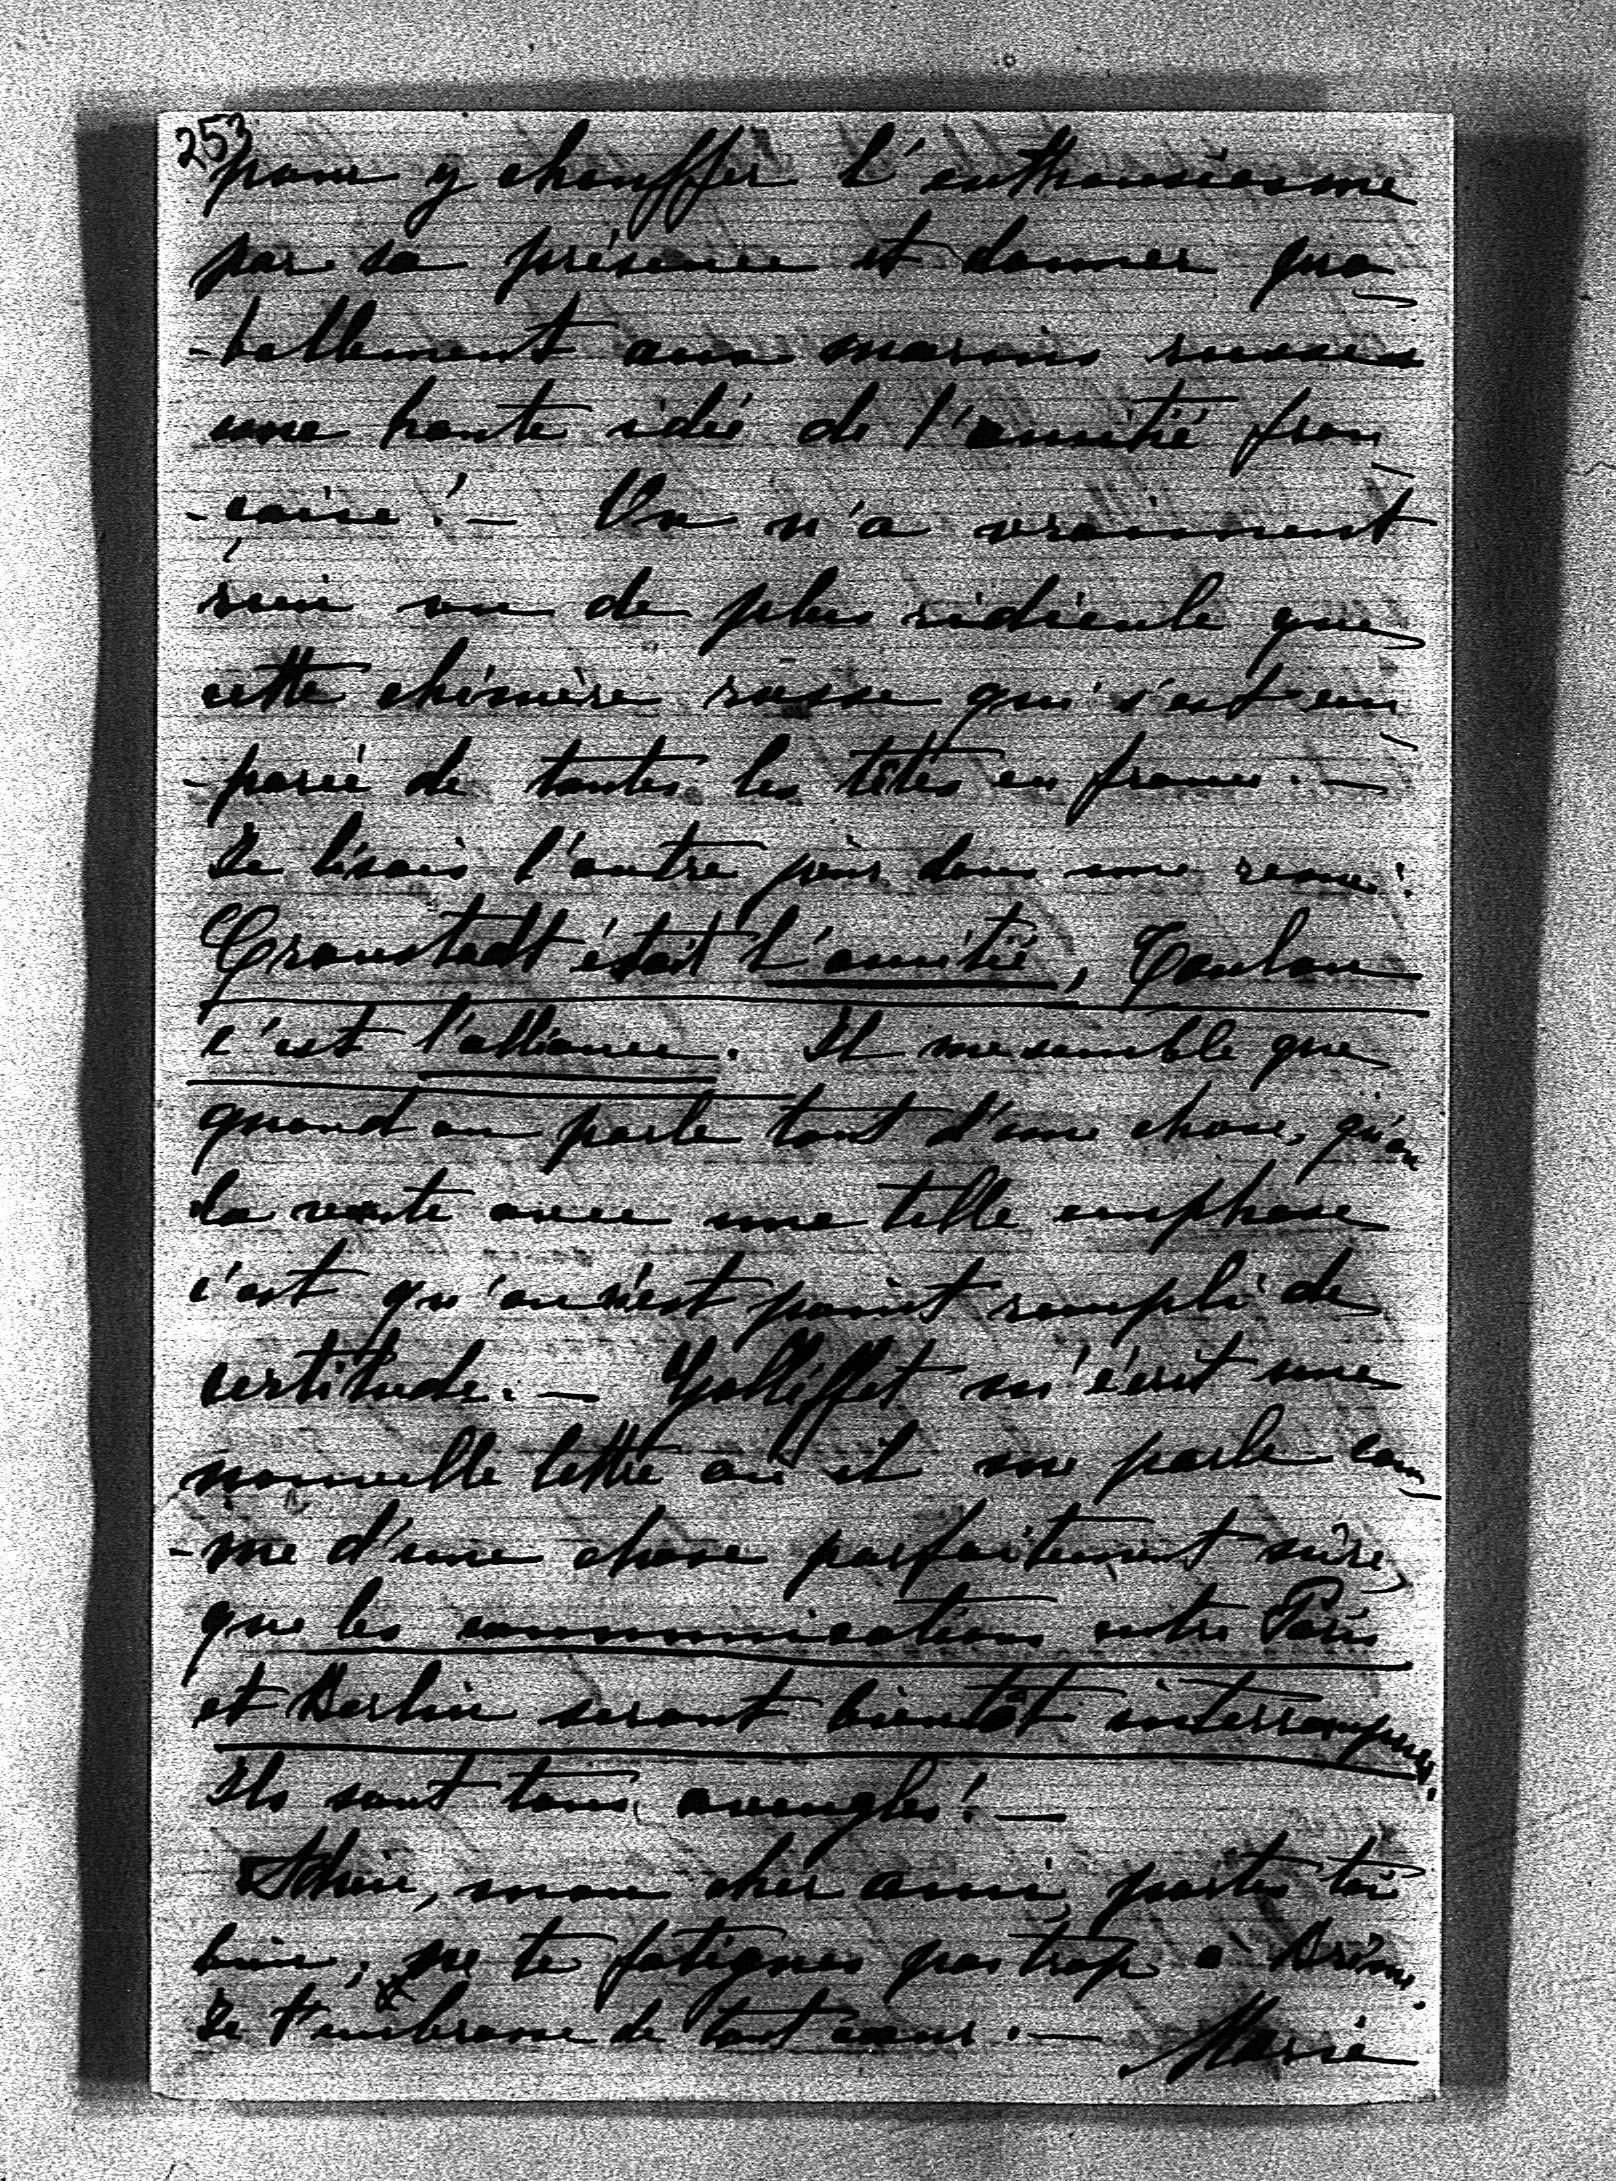 253
pour y chauffer l'enthousiasme
par sa présence et donner pro
-bablement aux marins russes
une haute idée de l'amitié fran
-çaise! — On n'a vraiment
rien vu de plus ridicule que
cette chimère russe qui s'est em
-parée de toutes les têtes en france. —
Je lisais l'autre jour dans une revue:
Cronstadt était l'amitié, Toulon
c'est l'alliance. Il me semble que
quand on parle tant d'une chose, qu'on
la vante avec une telle emphase
c'est qu'on n'est point rempli de
certitude. — Galléffet m'écrit une
nouvelle lettre où il me parle com
-me d'une chose parfaitement sûre,
que les communications entre Paris
et Berlin seront bientôt interrompues.
Ils sont tous aveugles! —
Adieu, mon cher ami, portes toi
bien, ne te fatigues pas trop à
Je t'embrasse de tout cœur. — Marie